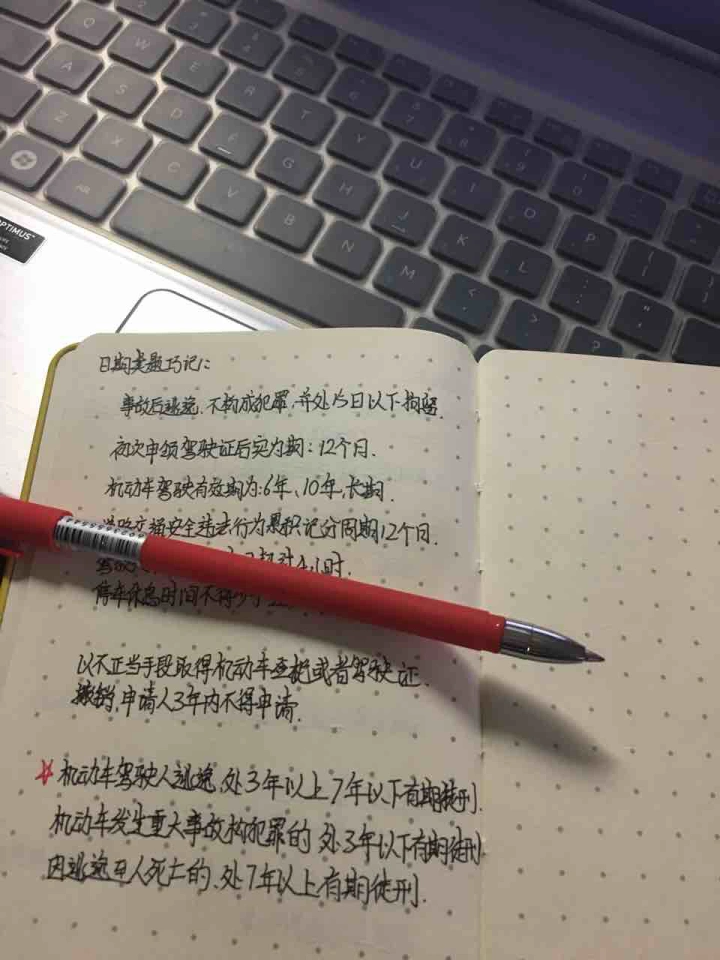 日期类题巧记:
事故后逃逸,不构成犯罪,并处15日以下拘留.
初次申领驾驶证后实为期:12个月.
机动车驾驶有效期为:6年、10年,长期.
道路交通安全违法行为累积记分周期12个月.
驾驶 4小时.
停车休息时间不得少于
以不正当手段取得机动车登记或者驾驶证.
撤销,申请人3年内不得申请.
☆机动车驾驶人逃逸,处3年以上7年以下有期徒刑.
机动车发生重大事故构犯罪的 处3年以下有期徒刑
因逃逸至人死亡的,处7年以上有期徒刑.
OPTIMUS™
Q W E R T Y U I O P
A S D F G H J K L
Z X C V B N M
Alt